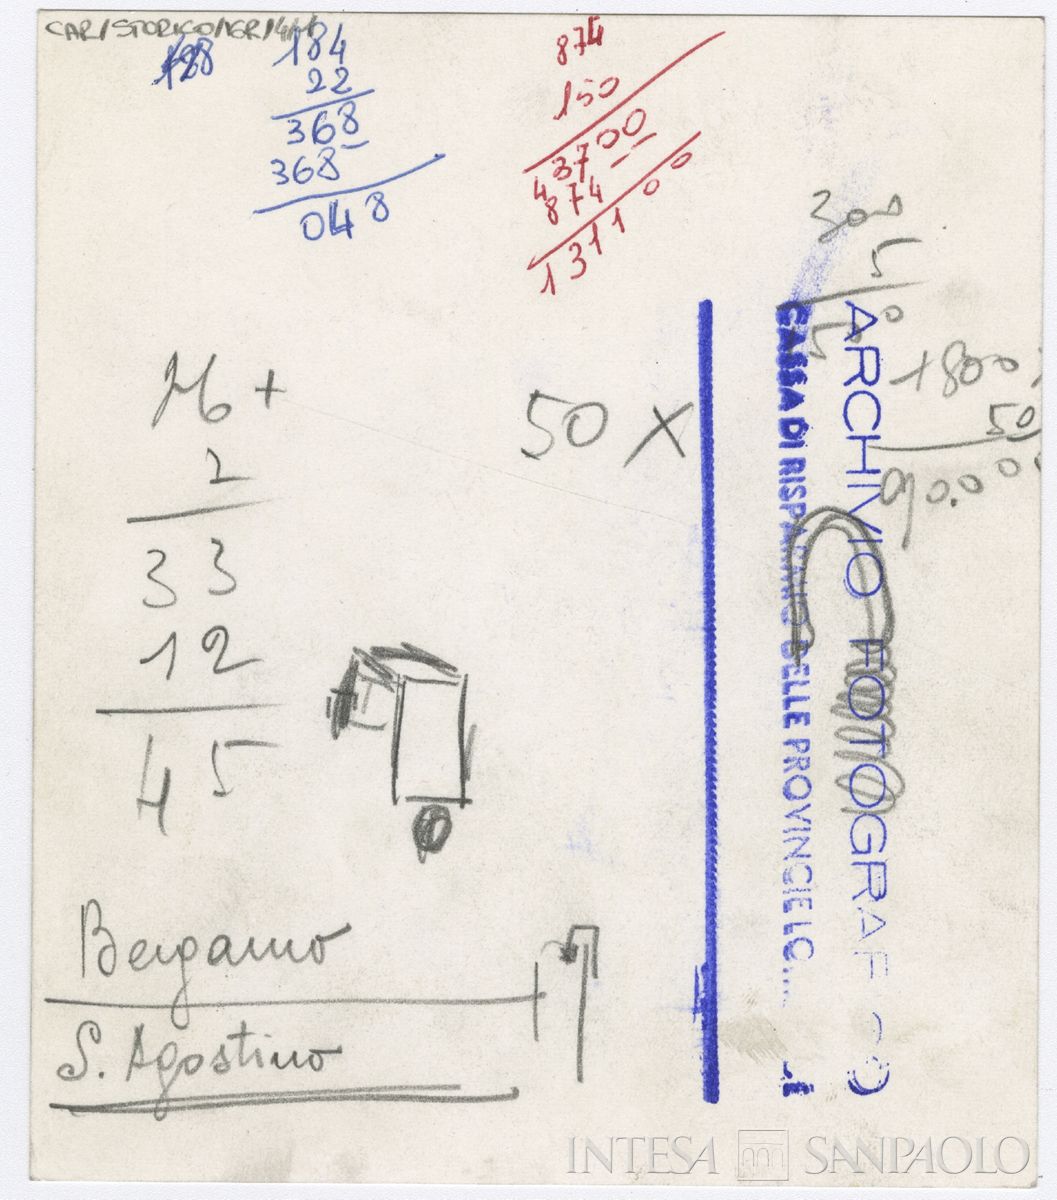 CAR/STORICO/VGR/4/11
188
184
22
368
368
048
874
150
43700
874
131100
300
5
1800
50
90.00
50 X
2
33
12
45
Bergamo
S. Agostino
ARCHIVIO FOTOGRAFICO
CASSA DI RISPARMIO DELLE PROVINCIE LO
INTESA SANPAOLO